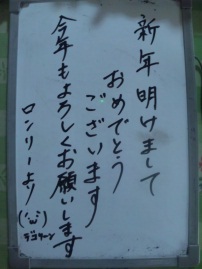 新年明けまして
おめでとう
ございます
今年もよろしくお願いします
ロンリーより
(´ω`)